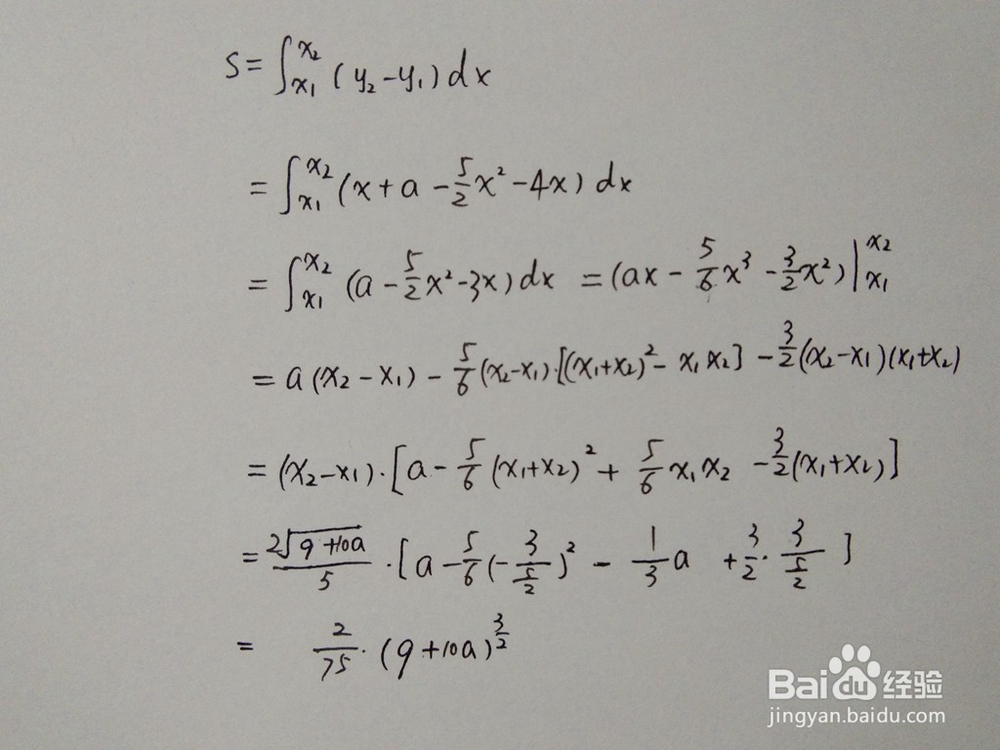 S = ∫_{x₁}^{x₂} (y₂ - y₁) dx
= ∫_{x₁}^{x₂} (x + a - \frac{5}{2}x² - 4x) dx
= ∫_{x₁}^{x₂} (a - \frac{5}{2}x² - 3x) dx = (ax - \frac{5}{6}x³ - \frac{3}{2}x²) |_{x₁}^{x₂}
= a(x₂ - x₁) - \frac{5}{6}(x₂ - x₁)·[(x₁ + x₂)² - x₁x₂] - \frac{3}{2}(x₂ - x₁)(x₁ + x₂)
= (x₂ - x₁)·[a - \frac{5}{6}(x₁ + x₂)² + \frac{5}{6}x₁x₂ - \frac{3}{2}(x₁ + x₂)]
= \frac{2\sqrt{9 + 10a}}{5}·[a - \frac{5}{6}(-\frac{3}{\frac{5}{2}})² - \frac{1}{3}a + \frac{3}{2}·\frac{3}{\frac{5}{2}}]
= \frac{2}{75}·(9 + 10a)^{\frac{3}{2}}
Bai du 经验
jingyan.baidu.com